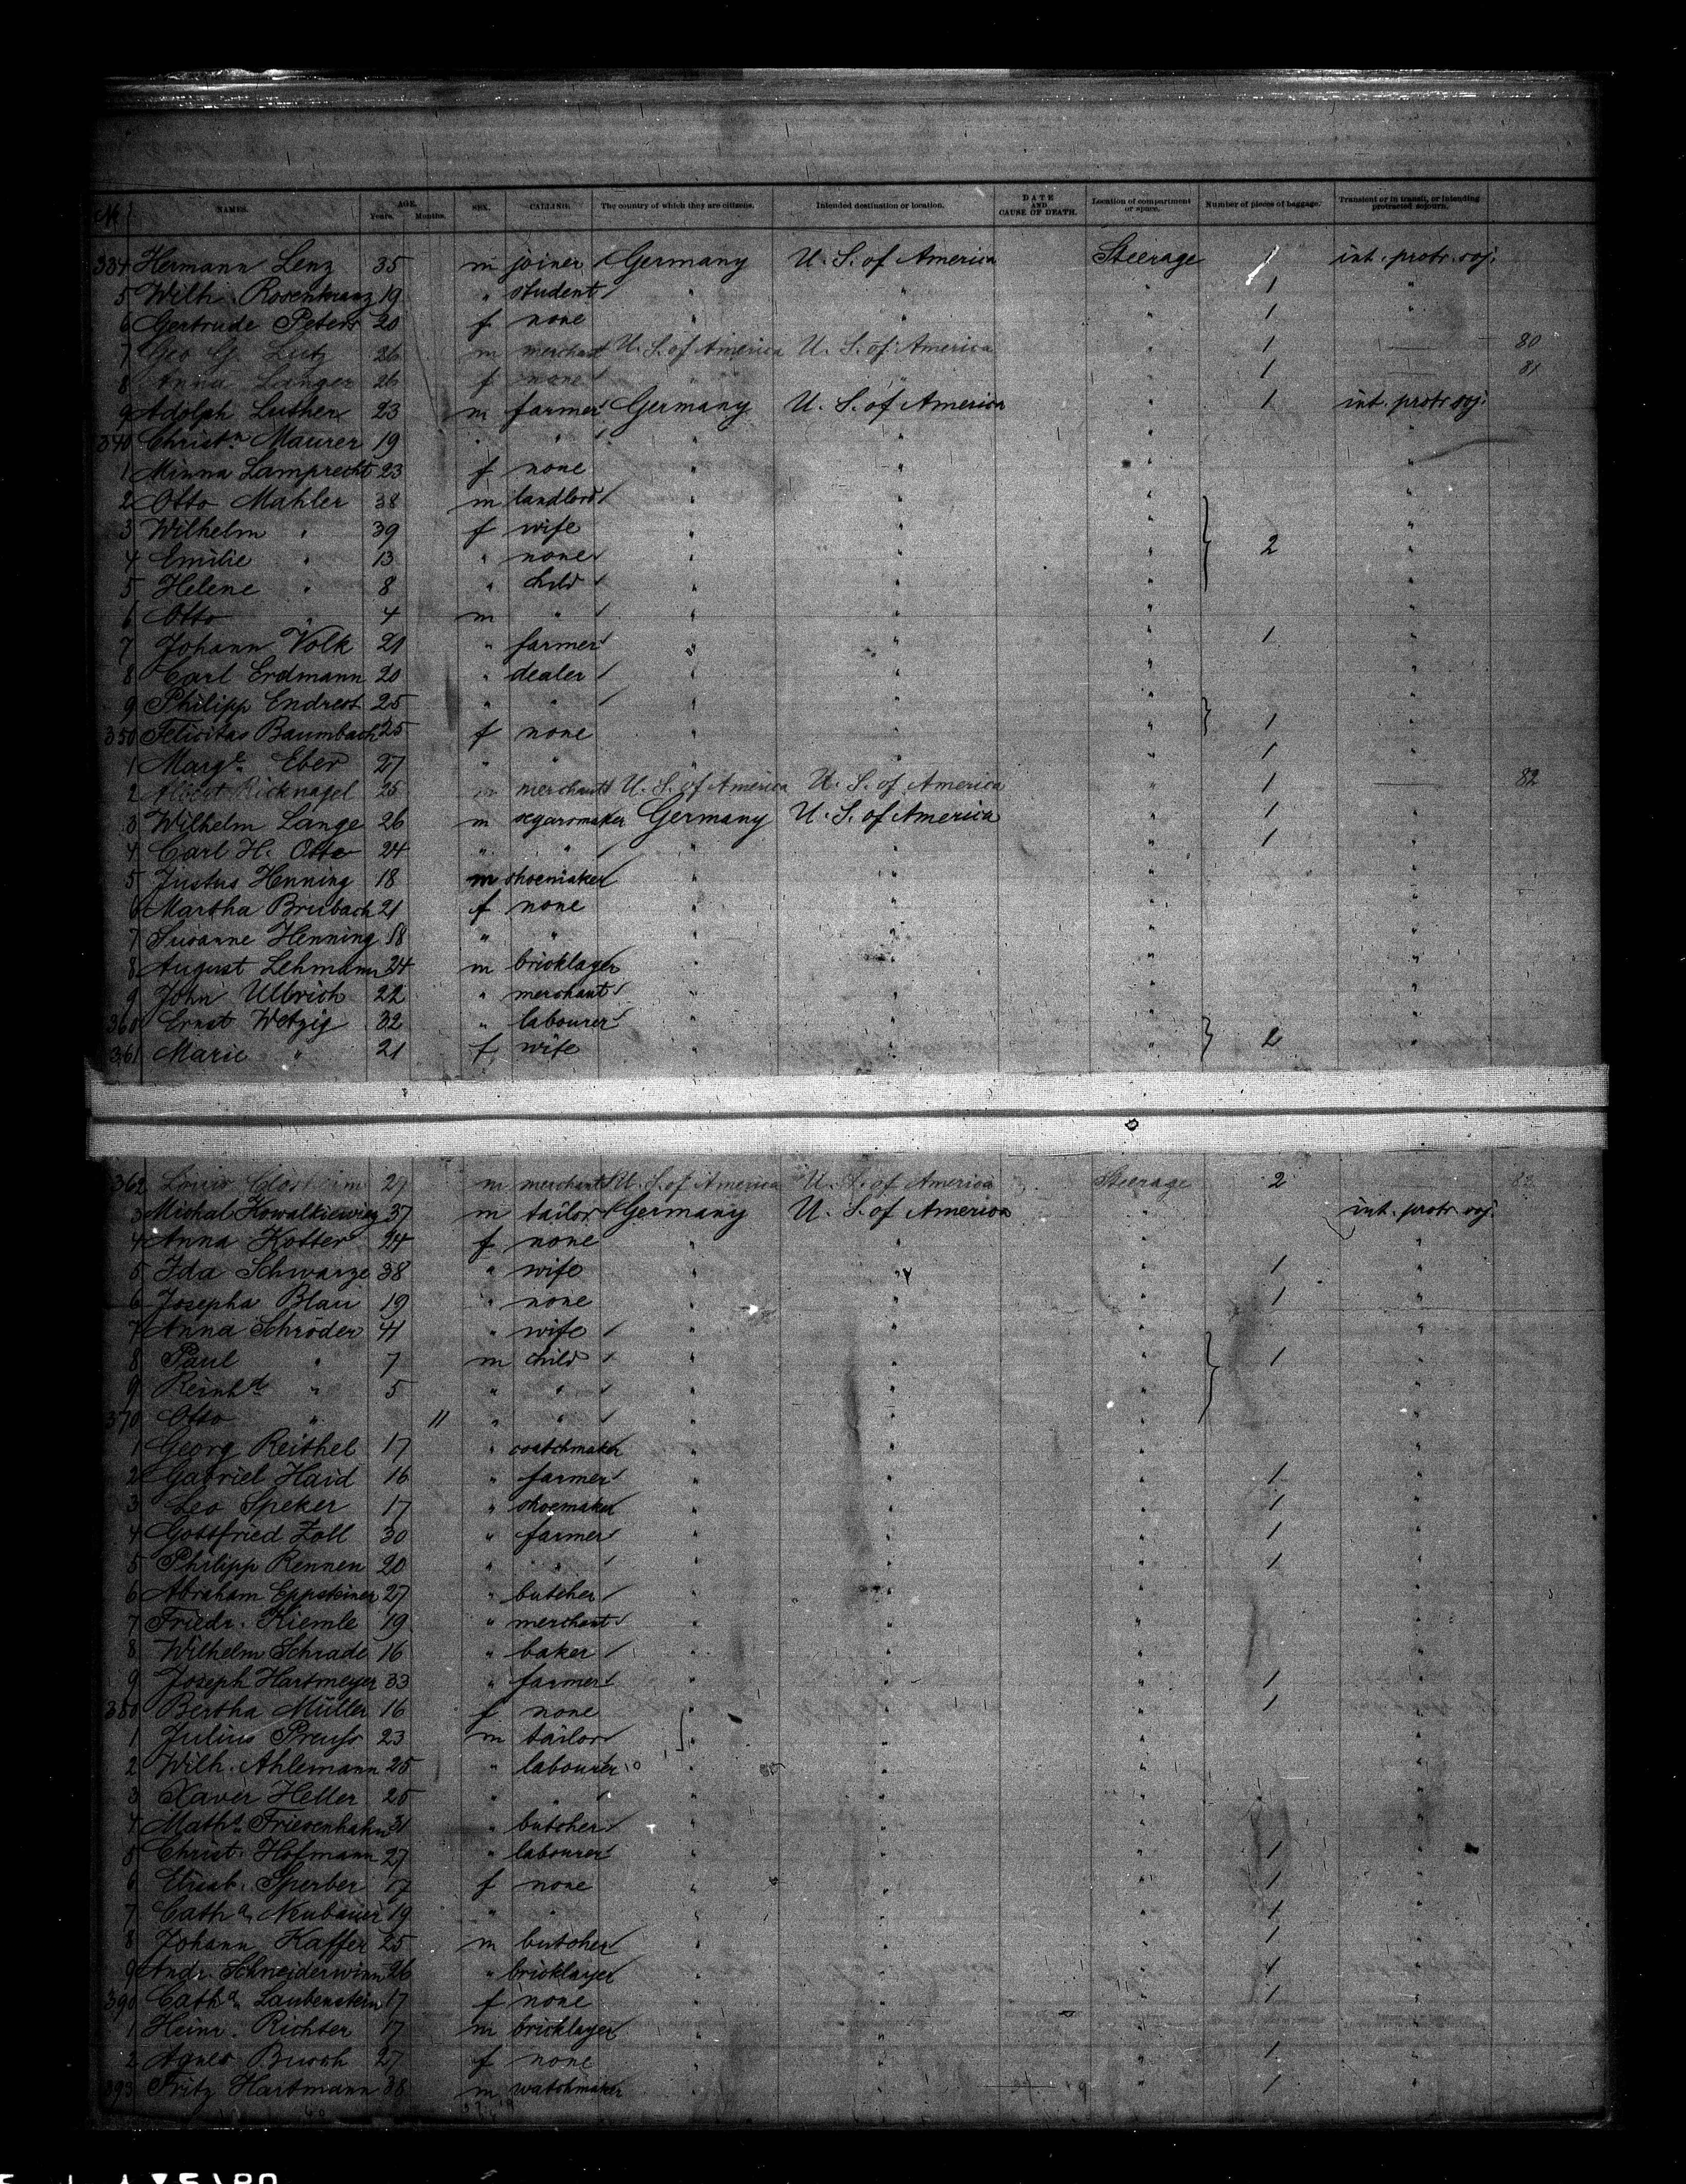 No. NAMES. AGE. Years. Months. SEX. CALLING. The country of which they are citizens. Intended destination or location. DATE AND CAUSE OF DEATH. Location of compartment or space. Number of pieces of baggage. Transient or in transit, or intending protracted sojourn.
334 Hermann Lenz 35 m joiner Germany U. S. of America Steerage 1 int. protr. soj.
5 Wilh. Rosenkranz 19 " student " " " 1 "
6 Gertrude Peters 20 f none " " " 1 "
7 Geo G. Lutz 26 m merchant U. S. of America U. S. of America " 1 — 80
8 Anna Langer 26 f none " " " 1 — 81
9 Adolph Luther 23 m farmer Germany U. S. of America " 1 int. protr. soj.
340 Christn Maurer 19 " " " " " "
1 Minna Lamprecht 23 f none " " " "
2 Otto Mahler 38 m landlord " " " "
3 Wilhelm " 39 f wife " " " "
4 Emilie " 13 " none " " " 2 "
5 Helene " 8 " child " " " "
6 Otto " 4 m " " " " "
7 Johann Volk 21 " farmer " " " 1 "
8 Carl Erdmann 20 " dealer " " " "
9 Philipp Endrest 25 " " " " " "
350 Felicitas Baumbach 25 f none " " " 1 "
1 Marge Eber 27 " " " " " 1 "
2 Albert Ricknagel 25 m merchant U. S. of America U. S. of America " 1 — 82
3 Wilhelm Lange 26 m segarsmaker Germany U. S. of America " 1 "
4 Carl H. Otte 24 " " " " " 1 "
5 Justus Henning 18 m shoemaker " " " "
6 Martha Brubach 21 f none " " " "
7 Susanne Henning 18 " " " " " "
8 August Lehmann 24 m bricklayer " " " "
9 John Ullrich 22 " merchant " " " "
360 Ernst Wetzig 32 " labourer " " " "
361 Marie " 21 f wife " " " 2 "
362 Louis 27 m merchant U. S. of America U. S. of America Steerage 2 83
3 Michal Kowalkiewicz 37 m tailor Germany U. S. of America " int. protr. soj.
4 Anna Kotter 24 f none " " " "
5 Ida Schwarze 38 " wife " " " 1 "
6 Josepha Blau 19 " none " " " 1 "
7 Anna Schröder 41 " wife " " " "
8 Paul " 7 m child " " " 1 "
9 Reinhd " 5 " " " " " "
370 Otto " 11 " " " " " "
1 Georg Reithel 17 " coatchmaker " " " "
2 Gabriel Haid 16 " farmer " " " 1 "
3 Leo Speker 17 " shoemaker " " " 1 "
4 Gottfried Zoll 30 " farmer " " " 1 "
5 Philipp Rennen 20 " " " " " 1 "
6 Abraham Eppsteiner 27 " butcher " " " "
7 Friedr. Kiemle 19 " merchant " " " "
8 Wilhelm Schrade 16 " baker " " " "
9 Joseph Hartmeyer 33 " farmer " " " 1 "
380 Bertha Müller 16 f none " " " 1 "
1 Julius Preuss 23 m tailor " " " "
2 Wilh. Ahlemann 25 " labourer " " " "
3 Xaver Heller 25 " " " " " "
4 Maths Friesenhahn 31 " butcher " " " "
5 Christ. Hofmann 27 " labourer " " " 1 "
6 Elisab. Sperber 17 f none " " " 1 "
7 Catha Neubauer 19 " " " " " 1 "
8 Johann Kaffer 25 m butcher " " " 1 "
9 Andr. Schneiderwinn 26 " bricklayer " " " 1 "
390 Catha Laubenstein 17 f none " " " 1 "
1 Heinr. Richter 17 m bricklayer " " " "
2 Agnes Busch 27 f none " " " 1 "
393 Fritz Hartmann 38 m watchmaker " " " 1 "